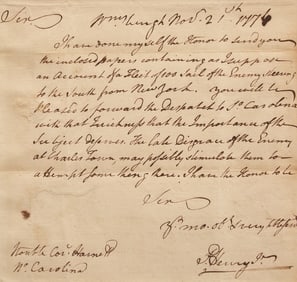 Sir, Wmsburgh Nov. 21st 1776
I have done myself the Honor to send you
the inclosed papers containing as I suppose
an Account of a Fleet 500 Sail of the Enemy steering
to the South from New York. You will be
pleased to forward the Dispatch to So. Carolina
with that quick
 that the Importance of the
Subject deserves. The late Disgrace of the Enemy
at Charles Town, may possibly stimulate them to
attempt something there. I have the Honor to be
Sir
Yr. mo. obt.
P. Henry Jr.
Honble Cor. Harnett
No. Carolina